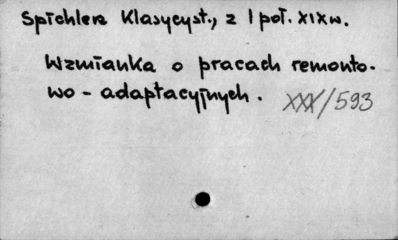 Spichlerz Klasycyst., z I poł. XIX w.
Wzmianka o pracach remonto-
wo - adaptacyjnych.
XXX/593